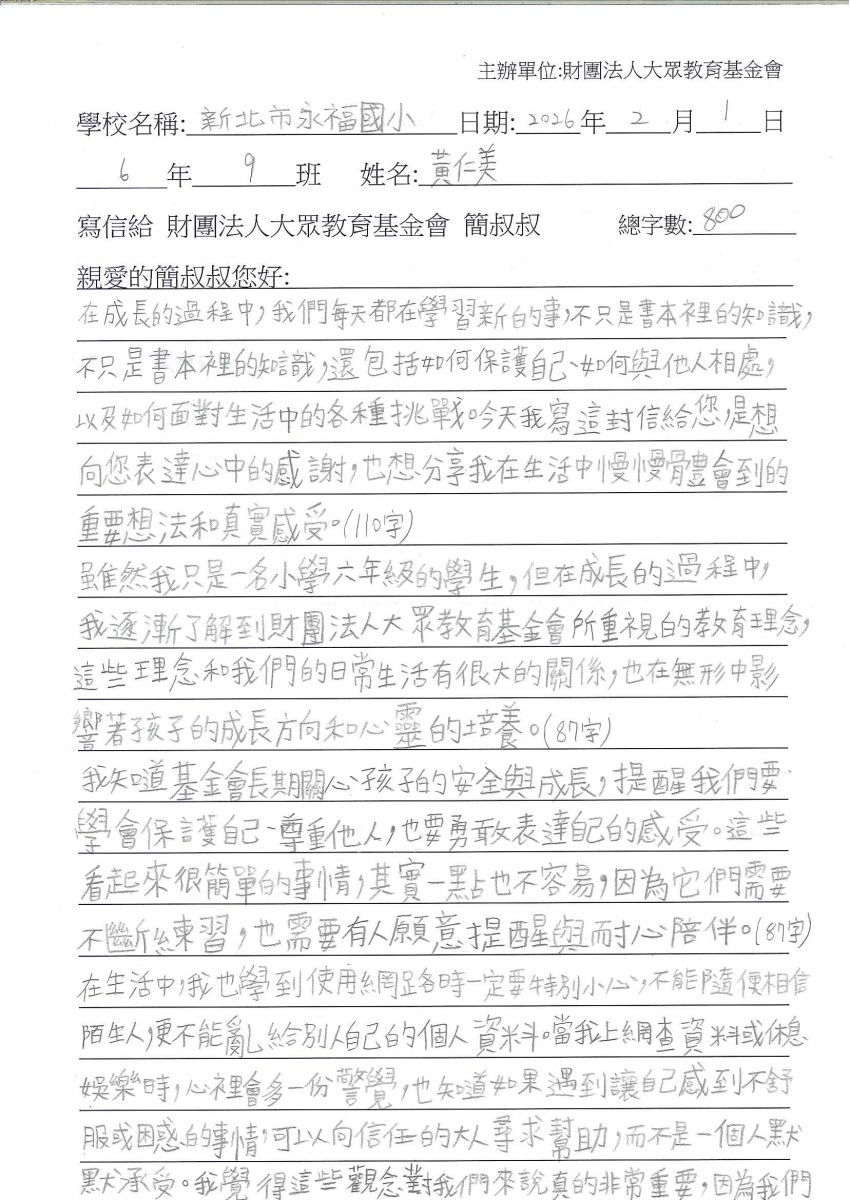 主辦單位:財團法人大眾教育基金會
學校名稱: 新北市永福國小 日期: 2026 年 2 月 1 日
6 年 9 班 姓名: 黃仁美
寫信給 財團法人大眾教育基金會 簡叔叔 總字數: 800
親愛的簡叔叔您好:
在成長的過程中,我們每天都在學習新的事,不只是書本裡的知識,
不只是書本裡的知識,還包括如何保護自己、如何與他人相處,
以及如何面對生活中的各種挑戰。今天我寫這封信給您,是想
向您表達心中的感謝,也想分享我在生活中慢慢體會到的
重要想法和真實感受。(110字)
雖然我只是一名小學六年級的學生,但在成長的過程中,
我逐漸了解到財團法人大眾教育基金會所重視的教育理念,
這些理念和我們的日常生活有很大的關係,也在無形中影
響著孩子的成長方向和心靈的培養。(87字)
我知道基金會長期關心孩子的安全與成長,提醒我們要
學會保護自己、尊重他人,也要勇敢表達自己的感受。這些
看起來很簡單的事情,其實一點也不容易,因為它們需要
不斷練習,也需要有人願意提醒與耐心陪伴。(87字)
在生活中,我也學到使用網路時一定要特別小心,不能隨便相信
陌生人,更不能亂給別人自己的個人資料。當我上網查資料或休息
娛樂時,心裡會多一份警覺,也知道如果遇到讓自己感到不舒
服或困惑的事情,可以向信任的大人尋求幫助,而不是一個人默
默承受。我覺得這些觀念對我們來說真的非常重要,因為我們